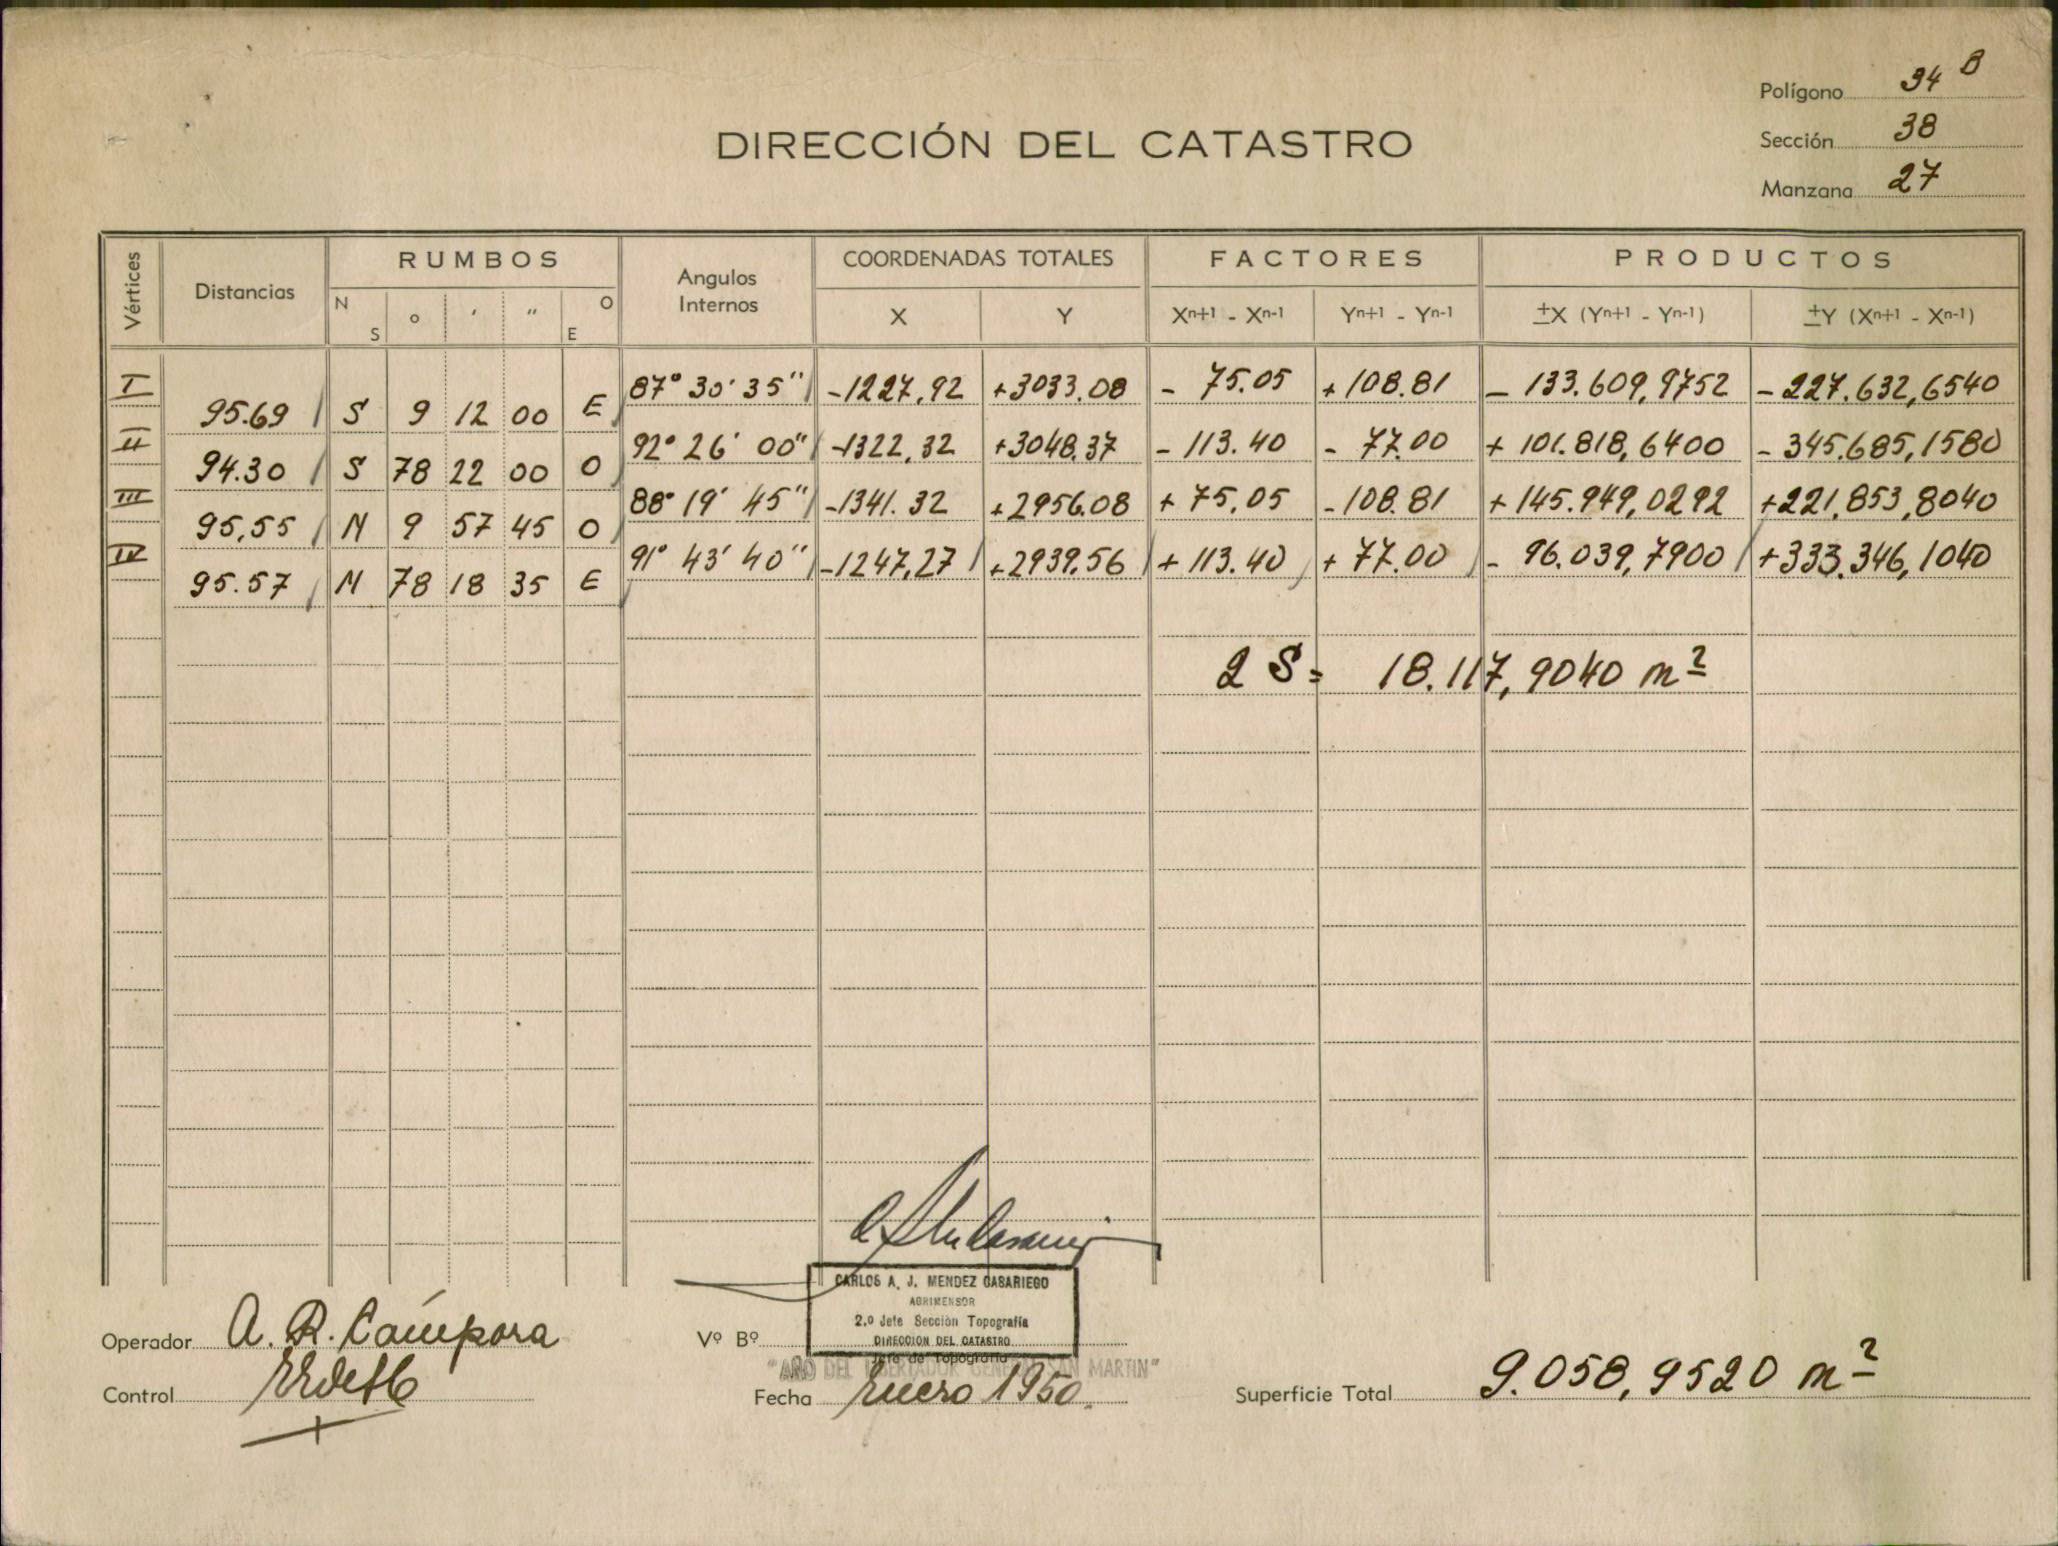 Polígono 34 B
DIRECCIÓN DEL CATASTRO
Sección 38
Manzana 27
Vértices Distancias RUMBOS Angulos Internos COORDENADAS TOTALES FACTORES PRODUCTOS
N S ° ' " O E X Y Xn+1 - Xn-1 Yn+1 - Yn-1 ±X (Yn+1 - Yn-1) ±Y (Xn+1 - Xn-1)
I 87° 30' 35" -1227,92 +3033.08 - 75.05 +108.81 - 133.609,9752 - 227.632,6540
95.69 S 9 12 00 E
II 92° 26' 00" -1322,32 +3048.37 - 113.40 - 77.00 + 101.818,6400 - 345.685,1580
94.30 S 78 22 00 O
III 88° 19' 45" -1341.32 +2956.08 + 75.05 -108.81 + 145.949,0292 +221.853,8040
95,55 N 9 57 45 O
IV 91° 43' 40" -1247,27 +2939.56 + 113.40 + 77.00 - 96.039,7900 +333.346,1040
95.57 N 78 18 35 E
2 S = 18.117,9040 m²
CARLOS A. J. MENDEZ CASARIEGO
AGRIMENSOR
2.º Jefe Sección Topografía
DIRECCION DEL CATASTRO
Operador A. R. Cámpora
Vº Bº
Jefe de Topografía
"AÑO DEL LIBERTADOR GENERAL SAN MARTIN"
Control
Fecha Enero 1950.
Superficie Total 9.058,9520 m²